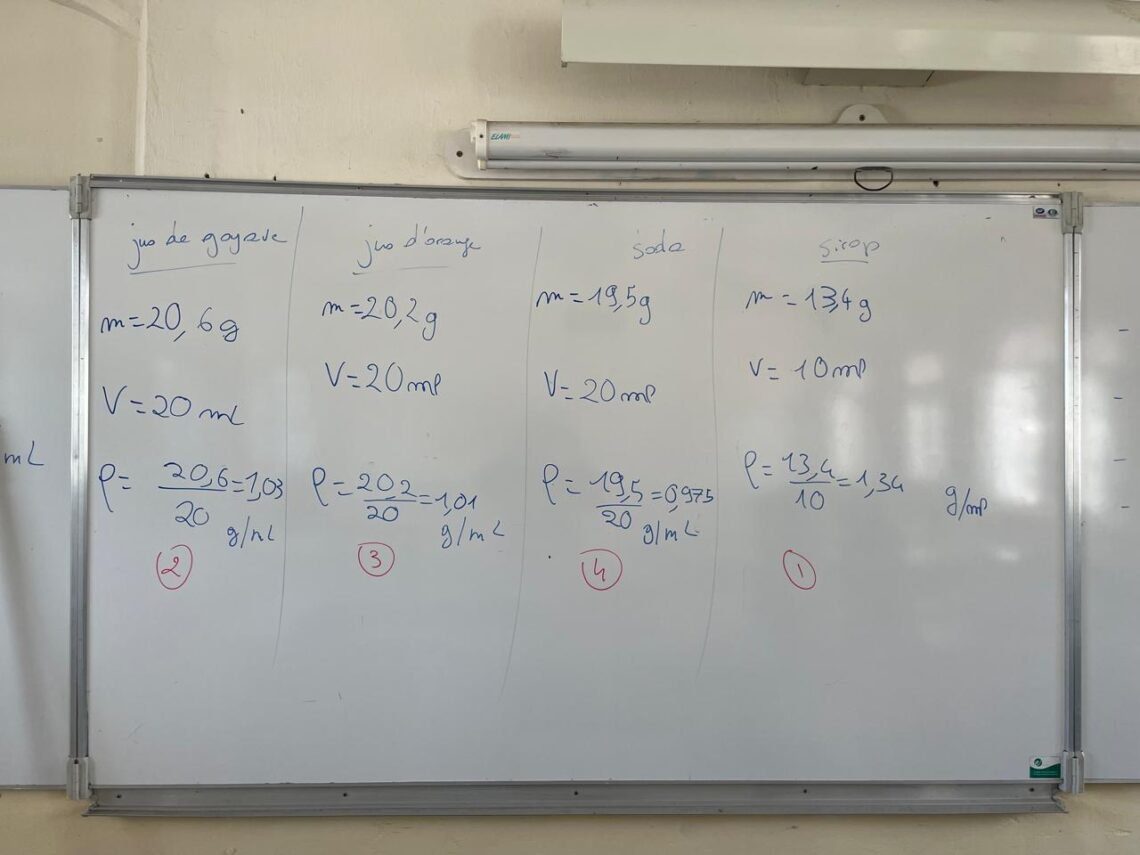 ELAMI
jus de goyave
m=20,6g
V=20 mL
ρ= 20,6/20 =1,03
g/mL
2
jus d'orange
m=20,2g
V=20ml
ρ=20,2/20=1,01
g/mL
3
soda
m=19,5g
V=20ml
ρ=19,5/20=0,975
g/mL
4
sirop
m=13,4g
V=10ml
ρ=13,4/10=1,34 g/ml
1
mL